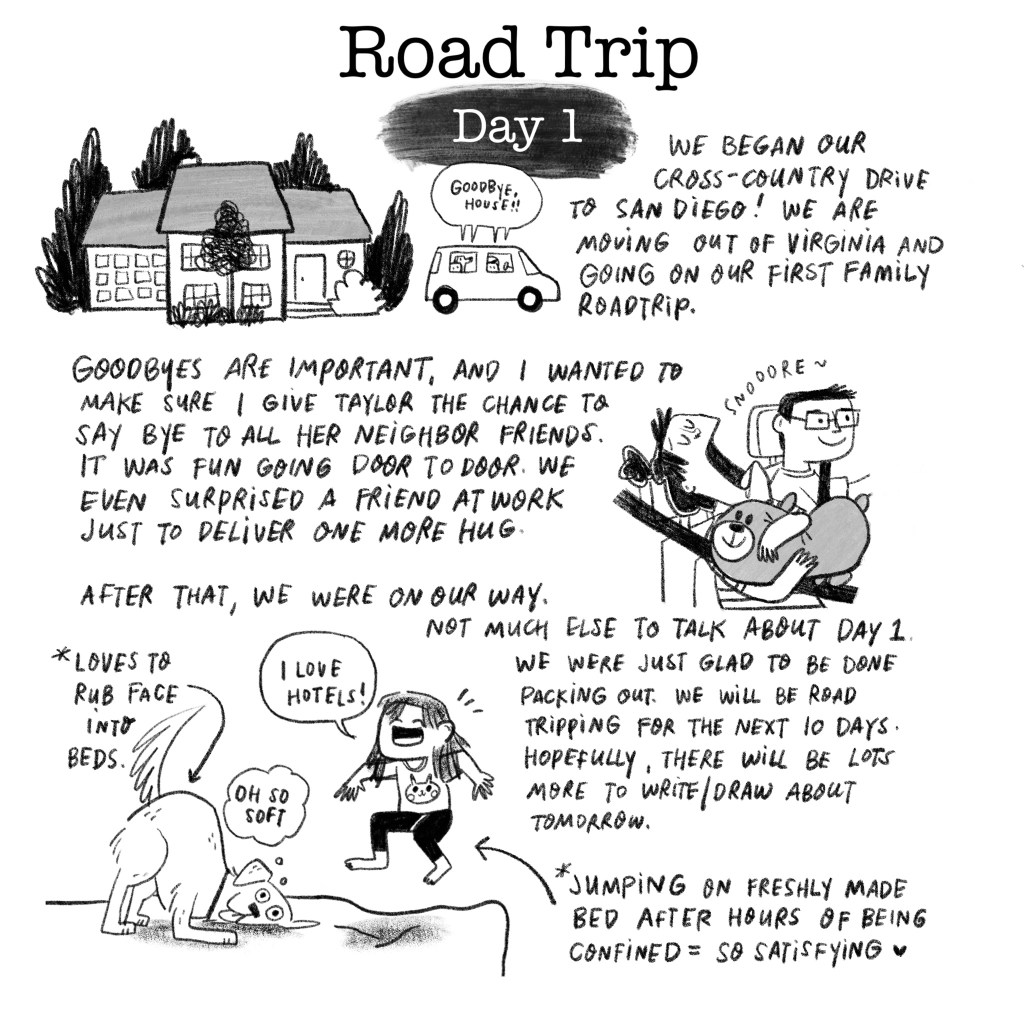 Road Trip
Day 1
GOODBYE,
HOUSE!!
WE BEGAN OUR
CROSS-COUNTRY DRIVE
TO SAN DIEGO! WE ARE
MOVING OUT OF VIRGINIA AND
GOING ON OUR FIRST FAMILY
ROADTRIP.
GOODBYES ARE IMPORTANT, AND I WANTED TO
MAKE SURE I GIVE TAYLOR THE CHANCE TO
SAY BYE TO ALL HER NEIGHBOR FRIENDS.
IT WAS FUN GOING DOOR TO DOOR. WE
EVEN SURPRISED A FRIEND AT WORK
JUST TO DELIVER ONE MORE HUG.
SNOOORE~
AFTER THAT, WE WERE ON OUR WAY.
NOT MUCH ELSE TO TALK ABOUT DAY 1.
WE WERE JUST GLAD TO BE DONE
PACKING OUT. WE WILL BE ROAD
TRIPPING FOR THE NEXT 10 DAYS.
HOPEFULLY, THERE WILL BE LOTS
MORE TO WRITE/DRAW ABOUT
TOMORROW.
*LOVES TO
RUB FACE
INTO
BEDS.
I LOVE
HOTELS!
OH SO
SOFT
*JUMPING ON FRESHLY MADE
BED AFTER HOURS OF BEING
CONFINED = SO SATISFYING ♥